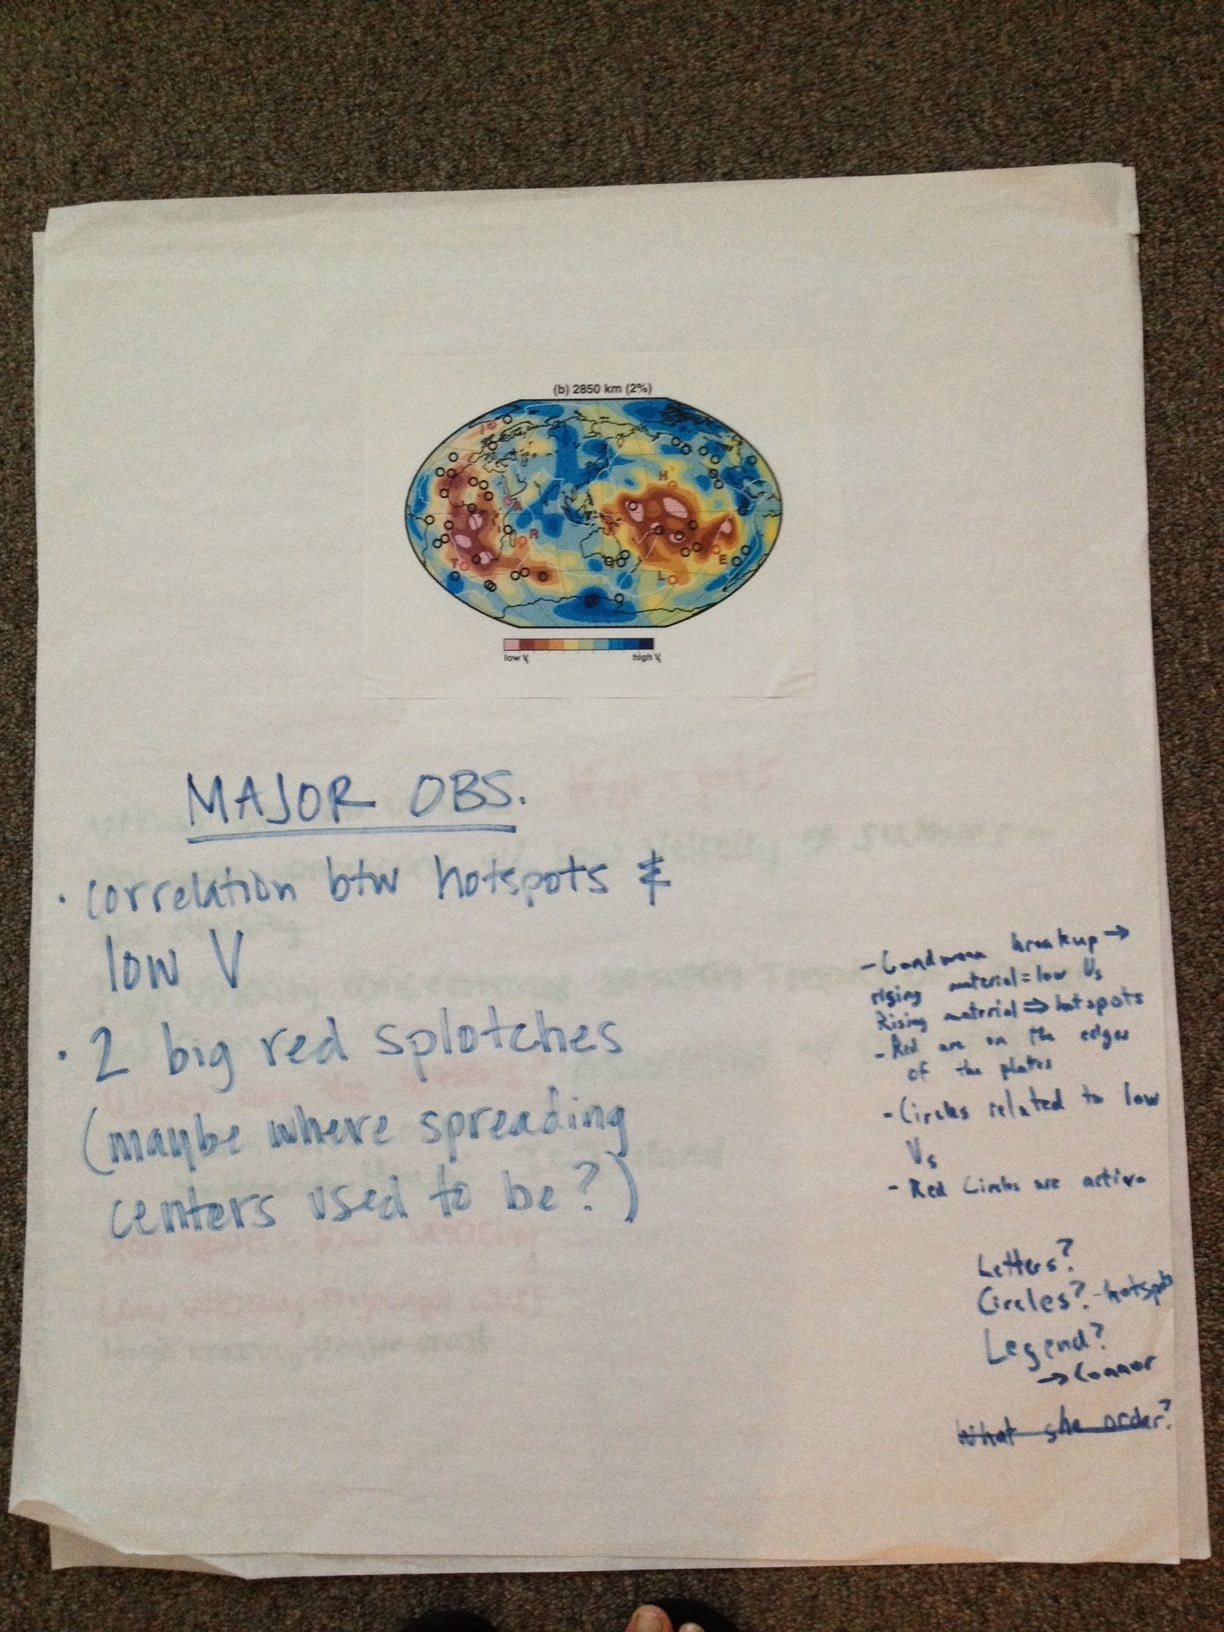 (b) 2850 km (2%)
I
H
A
R
T
E
L
low Vs
high Vs
MAJOR OBS.
· correlation btw hotspots &
low V
· 2 big red splotches
(maybe where spreading
centers used to be?)
- Gondwana breakup →
rising material = low Vs
Rising material ⇒ hotspots
- Red are on the edges
of the plates
- Circles related to low
Vs
- Red Circles are active
Letters?
Circles? - hotspots
Legend?
→ Connor
What she order?